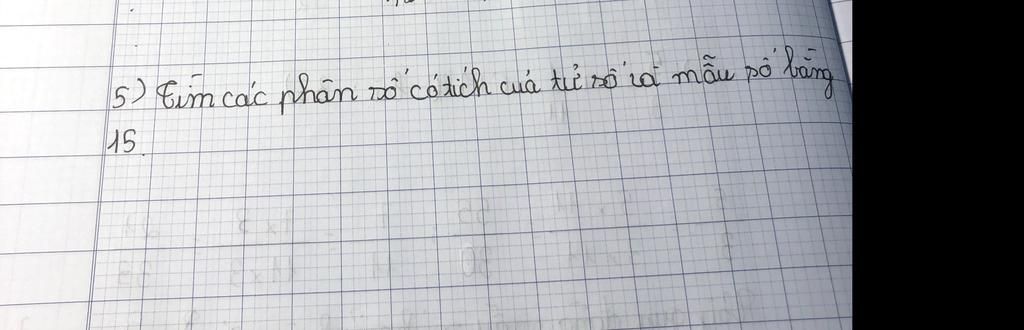 5) Tìm các phân số có tích của tử số và mẫu số bằng
15.